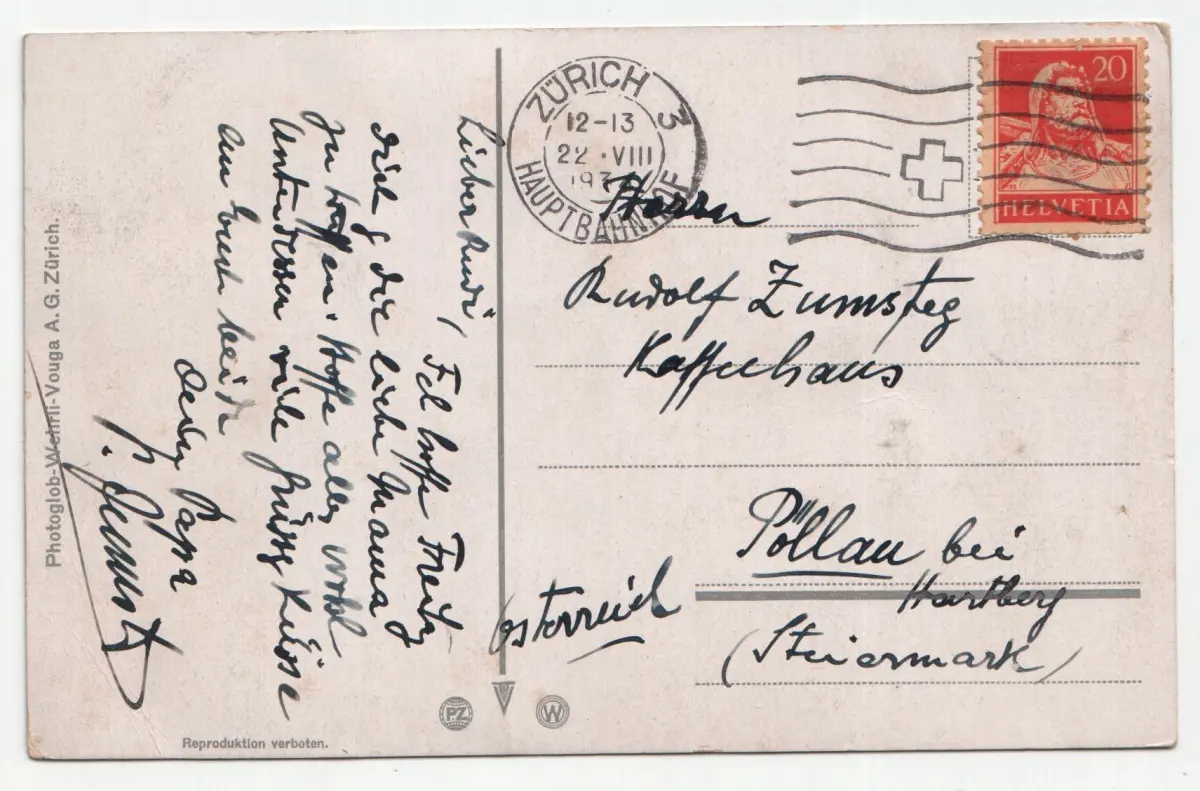 Lieber Rudi,
Ich hoffe Freitag
dich & die liebe Mama
zu treffen. Hoffe alles wohl
Unterdessen viele Grüsse Küsse
an euch beide
Dein Papa
ZÜRICH 3
12-13
22.VIII
HAUPTBAHNHOF
20
HELVETIA
Herrn
Rudolf Zumsteg
Kaffeehaus
Pöllau bei
Hartberg
(Steiermark)
Österreich
Photoglob-Wehrli-Vouga A. G. Zürich.
PZ
W
Reproduktion verboten.